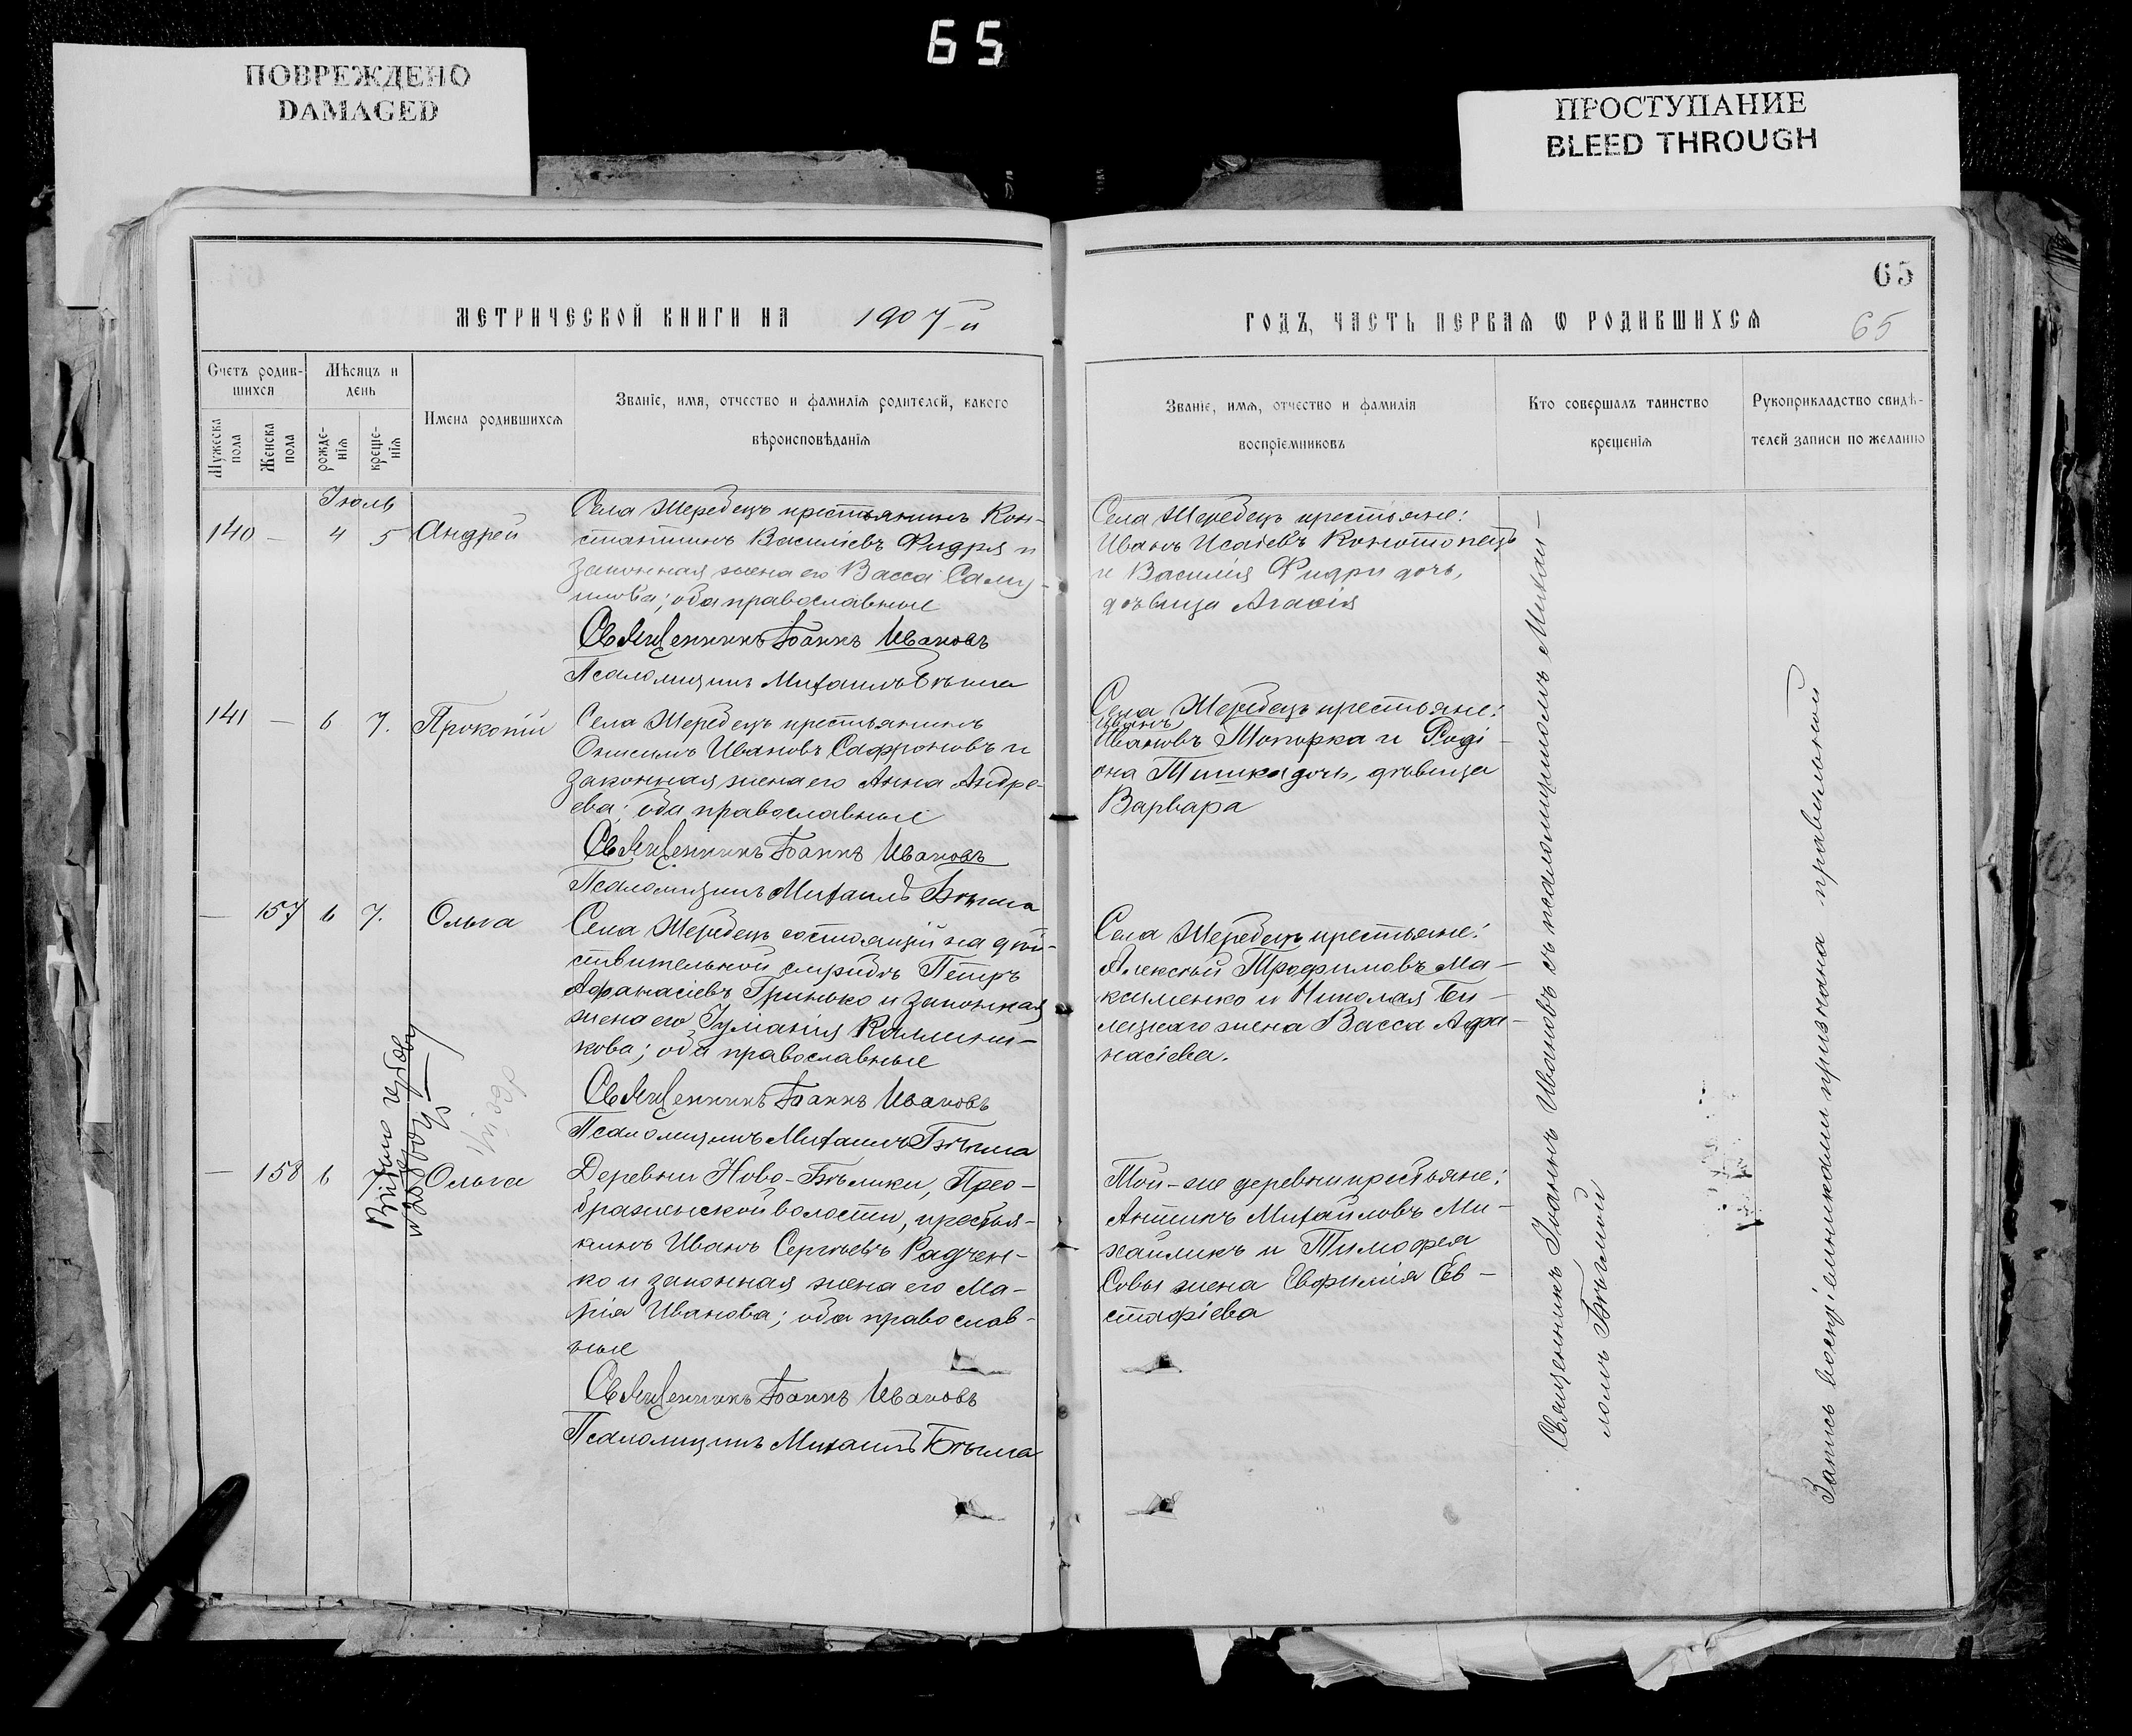 65
ПОВРЕЖДЕНО
DAMAGED
ПРОСТУПАНИЕ
BLEED THROUGH
65
МЕТРИЧЕСКОЙ КНИГИ НА 1907-й
ГОДЪ, ЧАСТЬ ПЕРВАЯ Ѡ РОДИВШИХСЯ
65
Счетъ родив-
шихся
Мѣсяцъ и
день
Мужеска
пола
Женска
пола
рожде-
нія
креще-
нія
Имена родившихся
Званіе, имя, отчество и фамилія родителей, какого
вѣроисповѣданія
Званіе, имя, отчество и фамилія
воспріемниковъ
Кто совершалъ таинство
крещенія
Рукоприкладство свидѣ-
телей записи по желанію
Іюль
140 — 4 5 Андрей
Села Жеребецъ крестьянинъ Кон-
стантинъ Василіевъ Фидря и
законная жена его Васса Саму-
илова; оба православные
Священникъ Іоаннъ Ивановъ
Псаломщикъ Михаилъ Бѣлый
Села Жеребецъ крестьяне:
Иванъ Исаіевъ Конотопецъ
и Василія Фидри дочь,
дѣвица Агафія
141 — 6 7. Прокопій
Села Жеребецъ крестьянинъ
Онисимъ Ивановъ Сафроновъ и
законная жена его Анна Андре-
ева; оба православные
Священникъ Іоаннъ Ивановъ
Псаломщикъ Михаилъ
Села Жеребецъ крестьяне:
Иванъ
Ивановъ и Роді-
она дочь, дѣвица
Варвара
— 157 6 7. Ольга
Села Жеребецъ состоящій на дѣй-
ствительной службѣ Петръ
Афанасіевъ Гринько и законная
жена его Іуліанія Каллини-
кова; оба православные
Священникъ Іоаннъ Ивановъ
Псаломщикъ Михаилъ
Села Жеребецъ крестьяне:
Алексѣй Трофимовъ Ма-
ксименко и Николая Би-
лецкаго жена Васса Афа-
насіева.
— 158 6 7 Ольга
Деревни Ново-Бѣлики, Прео-
браженской волости, крестья-
нинъ Иванъ Сергѣевъ Радчен-
ко и законная жена его Ма-
рія Иванова; оба православ-
ные
Священникъ Іоаннъ Ивановъ
Псаломщикъ Михаилъ
Той-же деревни крестьяне:
Антипъ Михайловъ Ми-
хайликъ и Тимофея
Совы жена Евфимія Ев-
стафіева
Священникъ Іоаннъ Ивановъ съ псаломщикомъ Михаи-
ломъ
Запись воспріемниками признана правильной